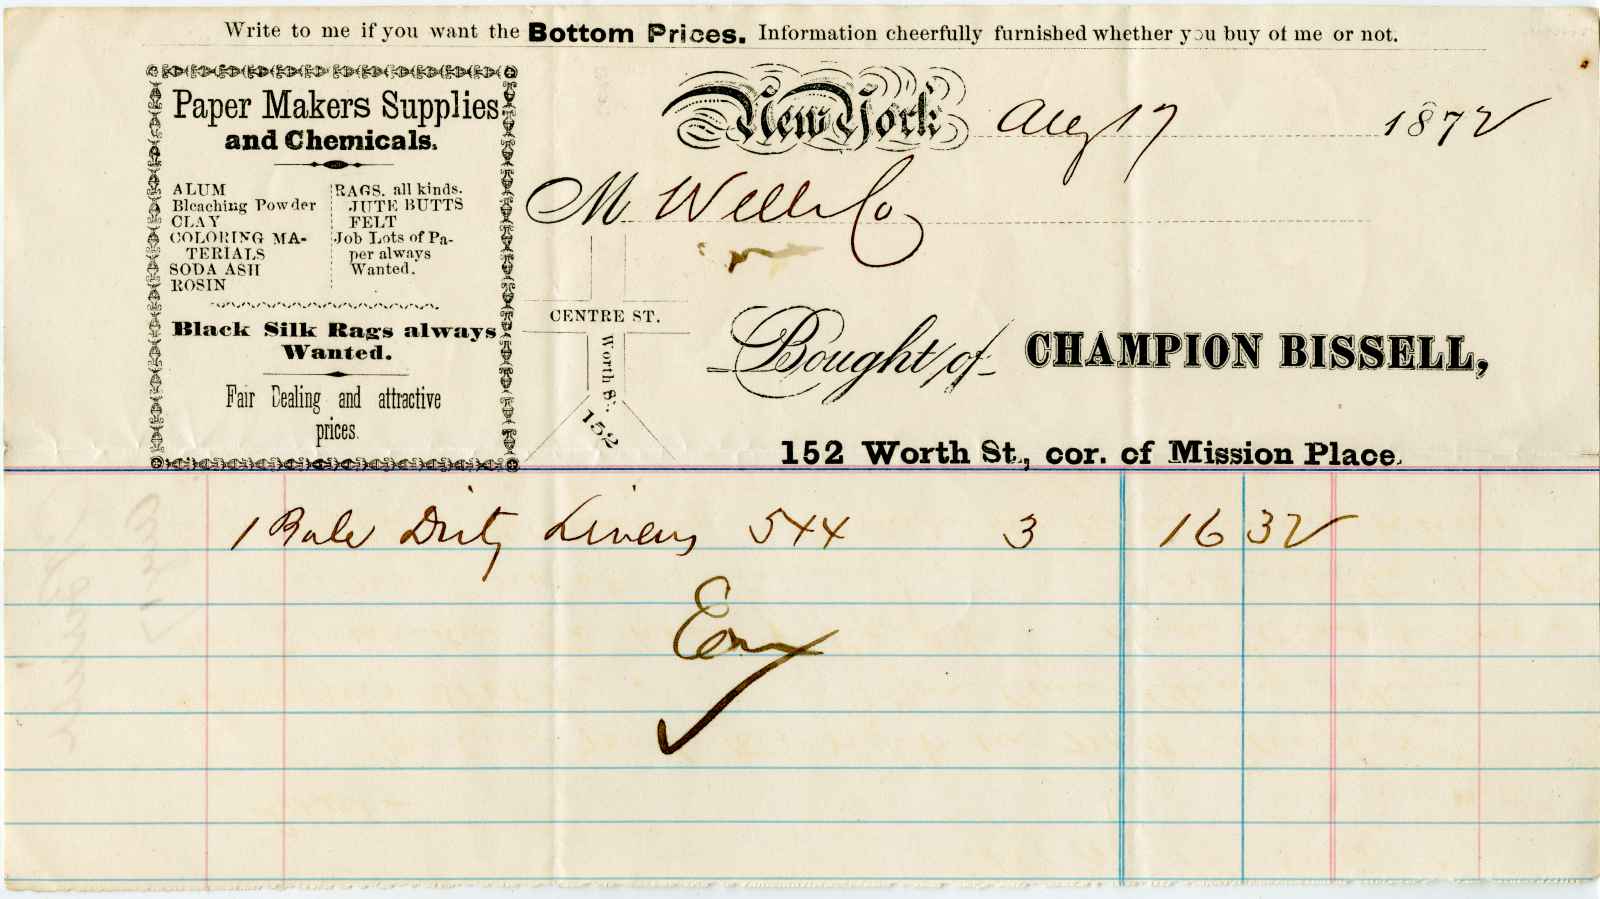 Write to me if you want the Bottom Prices. Information cheerfully furnished whether you buy of me or not.
Paper Makers Supplies
and Chemicals.
ALUM
Bleaching Powder
CLAY
COLORING MA-
TERIALS
SODA ASH
ROSIN
RAGS, all kinds.
JUTE BUTTS
FELT
Job Lots of Pa-
per always
Wanted.
Black Silk Rags always
Wanted.
Fair Dealing and attractive
prices.
New York Aug 17 1872
M Wells Co
CENTRE ST.
Worth St.
152
Bought of CHAMPION BISSELL,
152 Worth St., cor. of Mission Place.
1 Bale Dirty Linens 544 3 16 32